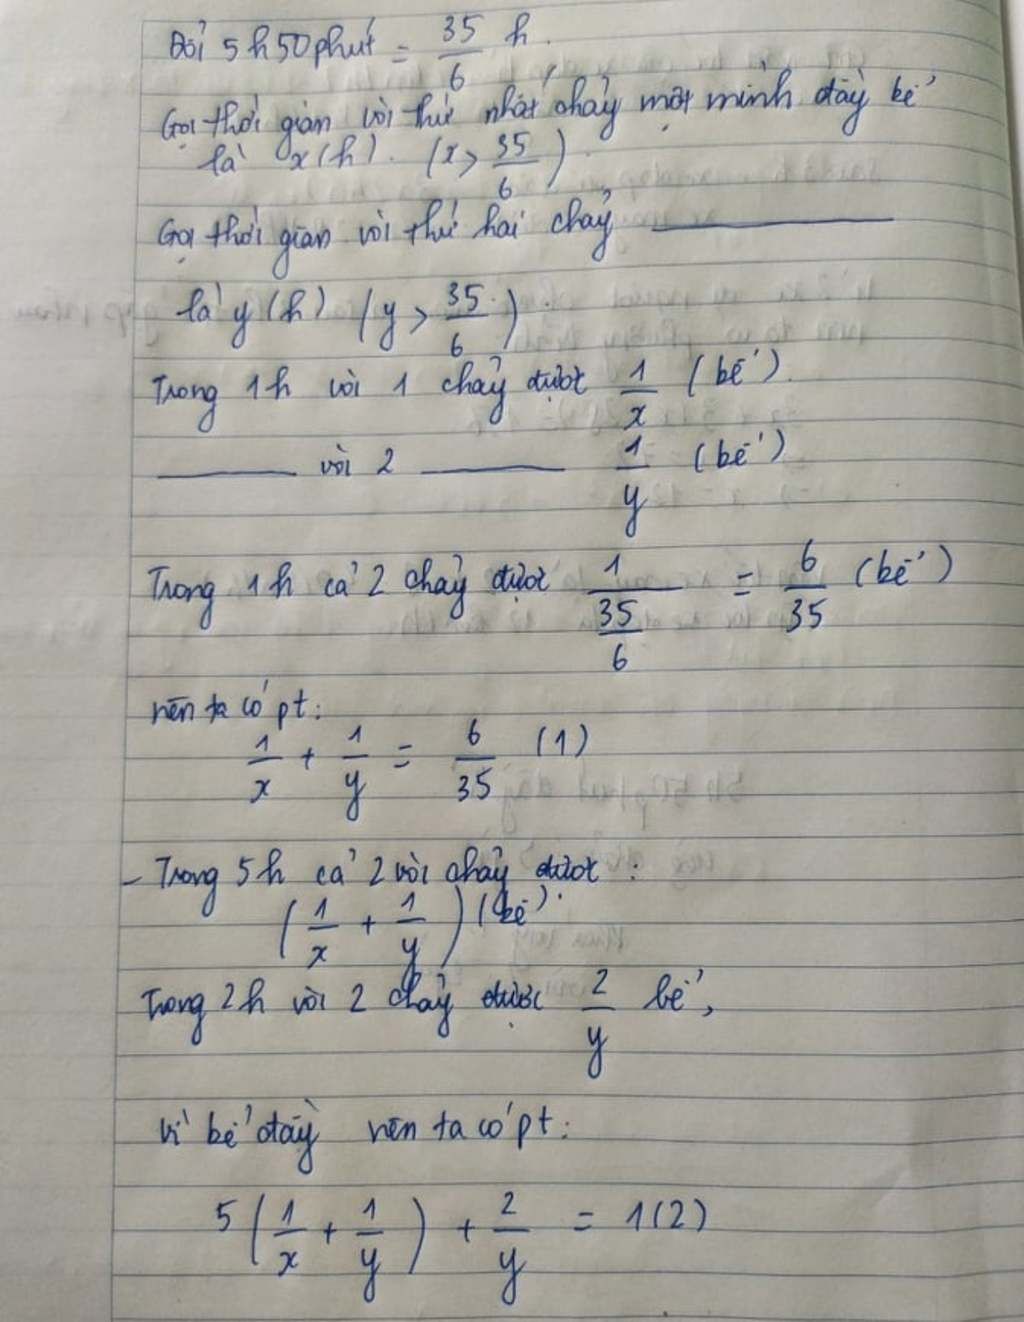 Đổi 5h50phút = 35/6 h.
Gọi thời gian vòi thứ nhất chảy một mình đầy bể
là x(h). (x > 35/6).
Gọi thời gian vòi thứ hai chảy ―――
là y(h) (y > 35/6).
Trong 1h vòi 1 chảy được 1/x (bể).
――― vòi 2 ――― 1/y (bể)
Trong 1h cả 2 chảy được 1/(35/6) = 6/35 (bể)
nên ta có pt:
1/x + 1/y = 6/35 (1)
- Trong 5h cả 2 vòi chảy được:
(1/x + 1/y) (bể).
Trong 2h vòi 2 chảy được 2/y bể,
Vì bể đầy nên ta có pt:
5(1/x + 1/y) + 2/y = 1(2)